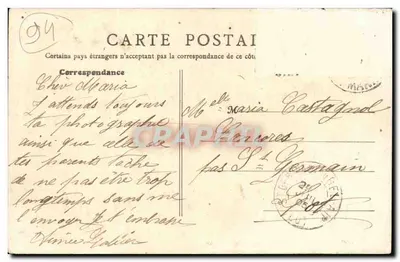 94
CARTE POSTAL
Certains pays étrangers n'acceptant pas la correspondance de ce côté
Correspondance
Cher Maria
J'attends toujours
ta photographie
ainsi que celle de
tes parents tache
de ne pas etre trop
longtemps sans me
l'envoyer Je t'embrasse
Melle Maria Castagnol
par St Germain